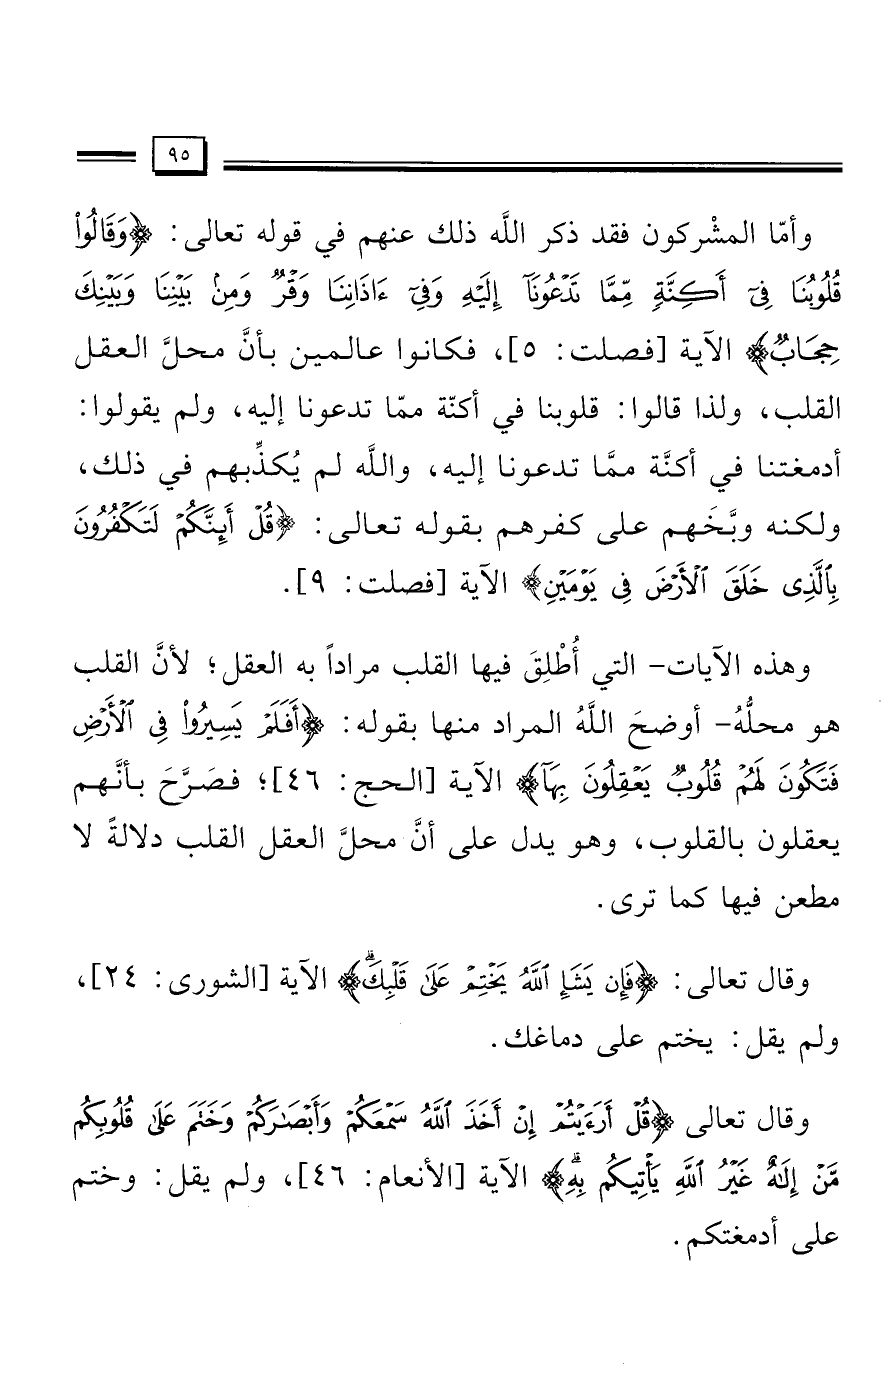 ٩٥
وأمّا المشْركون فقد ذكر اللَّه ذلك عنهم في قوله تعالى: ﴿وَقَالُوا۟
قُلُوبُنَا فِىٓ أَكِنَّةٍ مِّمَّا تَدْعُونَآ إِلَيْهِ وَفِىٓ ءَاذَانِنَا وَقْرٌ وَمِنۢ بَيْنِنَا وَبَيْنِكَ
حِجَابٌ﴾ الآية [فصلت: ٥]، فكانوا عالمين بأنَّ محلَّ العقل
القلب، ولذا قالوا: قلوبنا في أكنّة ممّا تدعونا إليه، ولم يقولوا:
أدمغتنا في أكنَّة ممَّا تدعونا إليه، واللَّه لم يُكذِّبهم في ذلك،
ولكنه وبَّخَهم على كفرهم بقوله تعالى: ﴿قُلْ أَئِنَّكُمْ لَتَكْفُرُونَ
بِٱلَّذِى خَلَقَ ٱلْأَرْضَ فِى يَوْمَيْنِ﴾ الآية [فصلت: ٩].
وهذه الآيات- التي أُطْلِقَ فيها القلب مراداً به العقل؛ لأنَّ القلب
هو محلُّهُ- أوضحَ اللَّهُ المراد منها بقوله: ﴿أَفَلَمْ يَسِيرُوا۟ فِى ٱلْأَرْضِ
فَتَكُونَ لَهُمْ قُلُوبٌ يَعْقِلُونَ بِهَآ﴾ الآية [الحج: ٤٦]؛ فصَرَّحَ بأنَّهم
يعقلون بالقلوب، وهو يدل على أنَّ محلَّ العقل القلب دلالةً لا
مطعن فيها كما ترى.
وقال تعالى: ﴿فَإِن يَشَإِ ٱللَّهُ يَخْتِمْ عَلَىٰ قَلْبِكَۗ﴾ الآية [الشورى: ٢٤]،
ولم يقل: يختم على دماغك.
وقال تعالى ﴿قُلْ أَرَءَيْتُمْ إِنْ أَخَذَ ٱللَّهُ سَمْعَكُمْ وَأَبْصَـٰرَكُمْ وَخَتَمَ عَلَىٰ قُلُوبِكُم
مَّنْ إِلَـٰهٌ غَيْرُ ٱللَّهِ يَأْتِيكُم بِهِۗ﴾ الآية [الأنعام: ٤٦]، ولم يقل: وختم
على أدمغتكم.